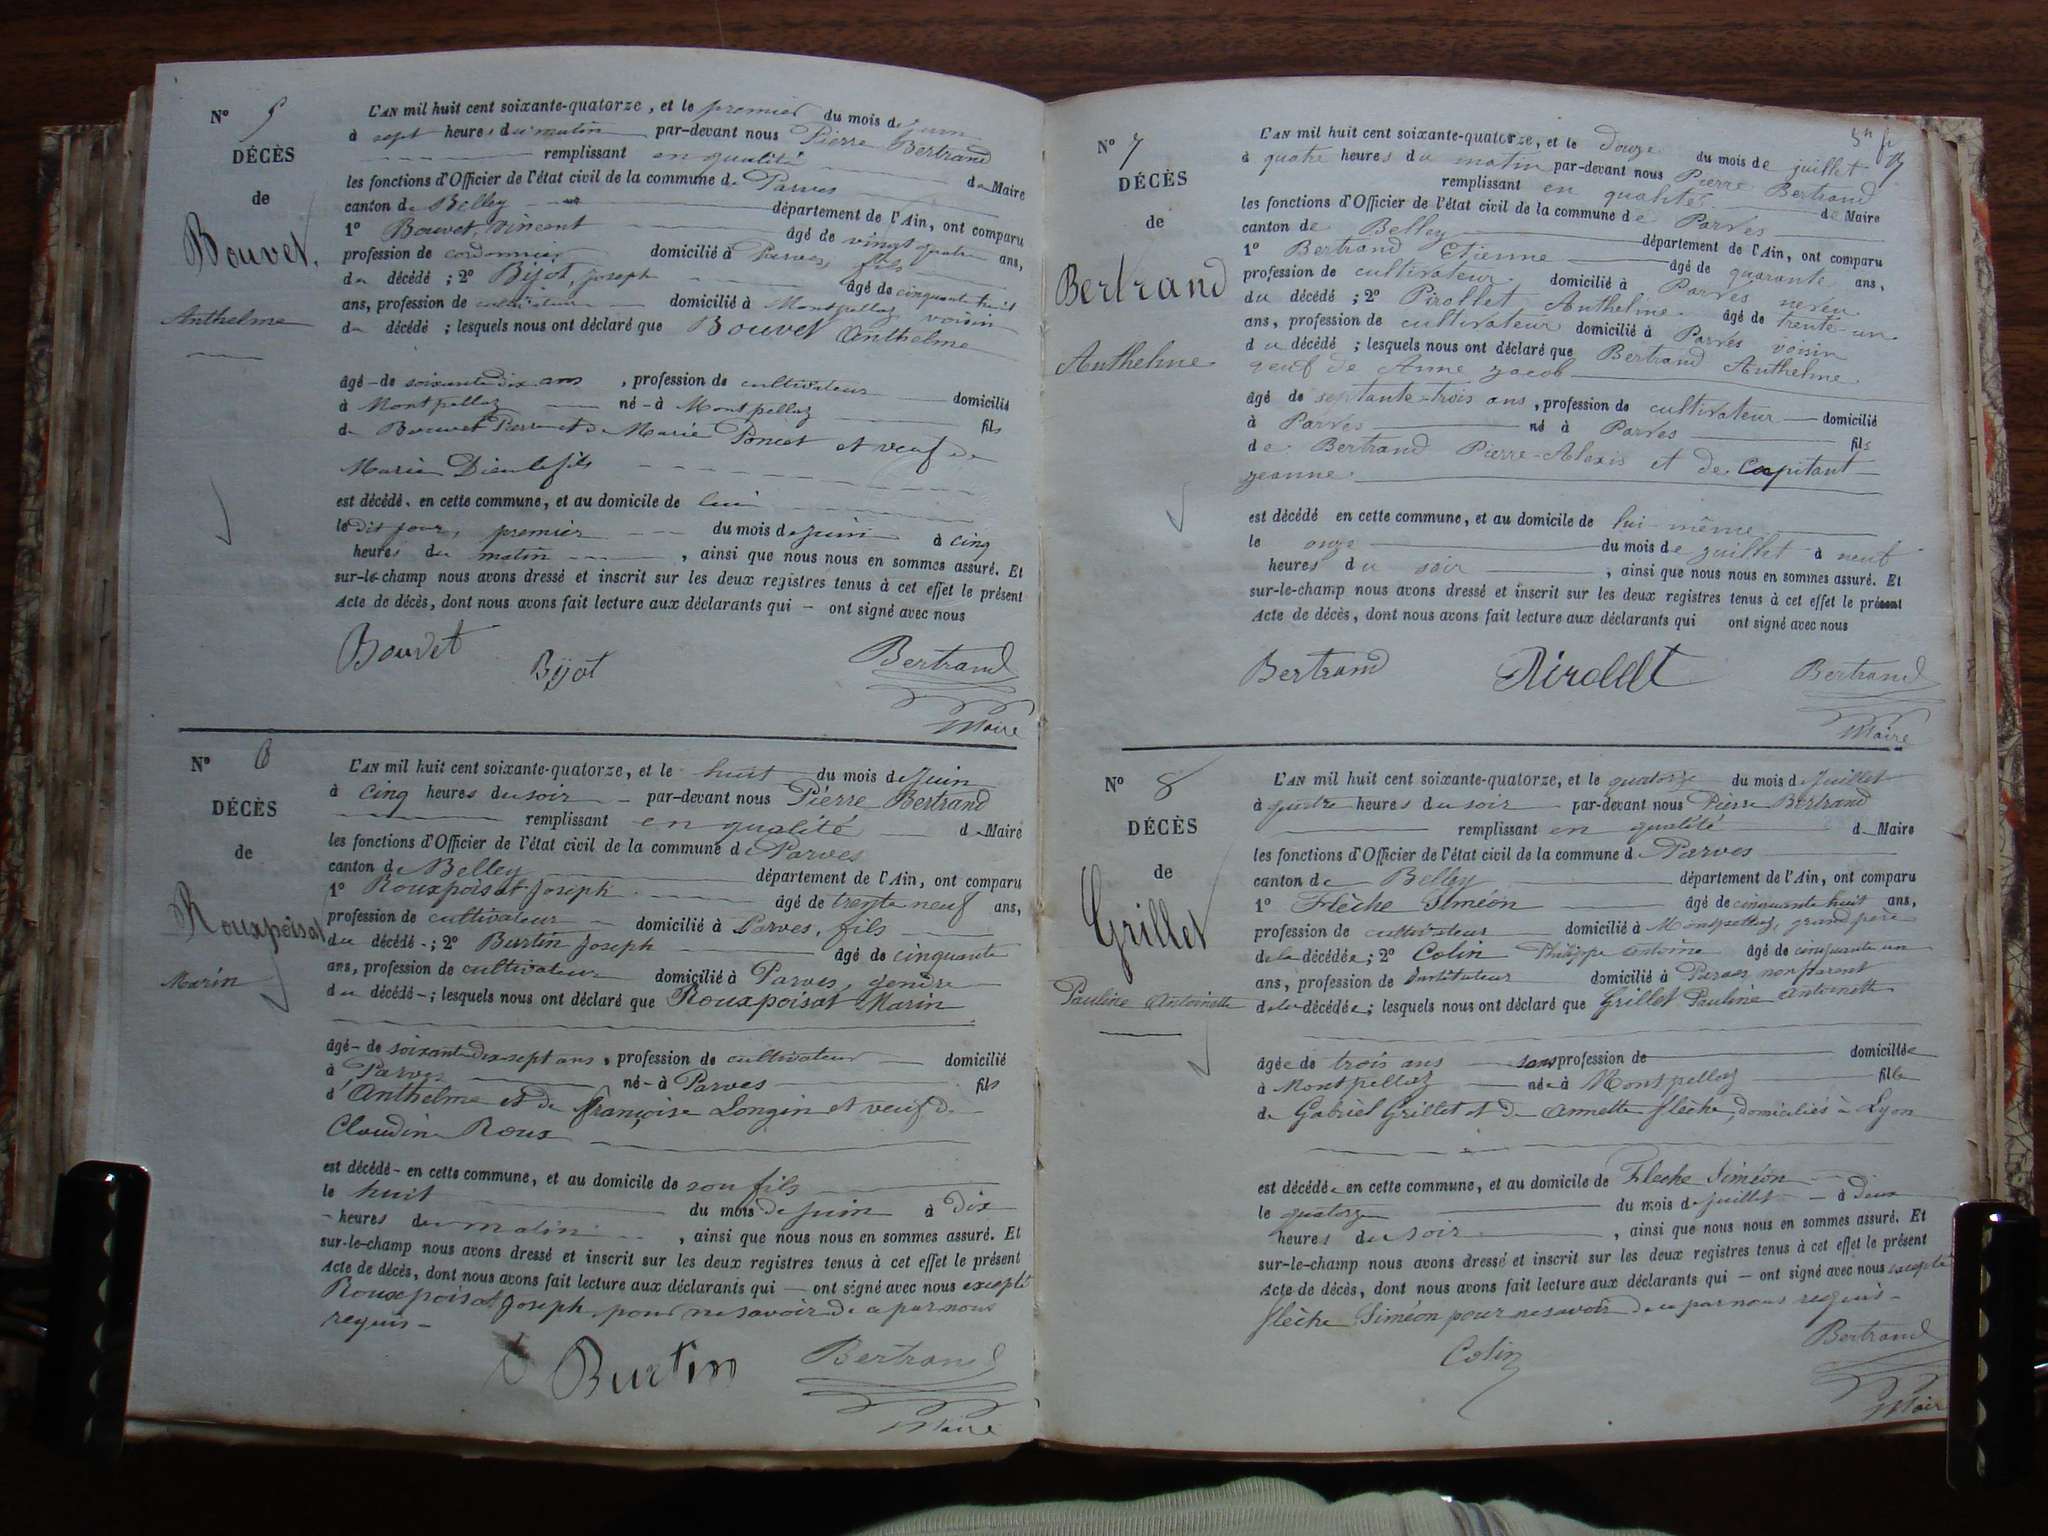 N° 5
DÉCÈS
de
Bouvet,
Anthelme
L'AN mil huit cent soixante-quatorze, et le premier du mois de juin
à sept heures du matin par-devant nous Pierre Bertrand
remplissant en qualité de Maire
les fonctions d'Officier de l'état civil de la commune de Parves
canton de Belley département de l'Ain, ont comparu
1° Bouvet, Vincent âgé de vingt quatre ans,
profession de cordonnier domicilié à Parves, fils
du décédé ; 2° Bijot, Joseph âgé de cinquante huit
ans, profession de cultivateur domicilié à Montpellaz voisin
du décédé ; lesquels nous ont déclaré que Bouvet Anthelme
âgé de soixante dix ans , profession de cultivateur domicilié
à Montpellaz né à Montpellaz fils
de Bouvet Pierre et de Marie Poncet et veuf de
Marie Dieulefils
est décédé en cette commune, et au domicile de lui
le dit jour, premier du mois de juin à cinq
heures du matin , ainsi que nous nous en sommes assuré. Et
sur-le-champ nous avons dressé et inscrit sur les deux registres tenus à cet effet le présent
Acte de décès, dont nous avons fait lecture aux déclarants qui ont signé avec nous
Bouvet Bijot Bertrand
Maire
N° 6
DÉCÈS
de
Rouxpoisat
Marin
L'AN mil huit cent soixante-quatorze, et le huit du mois de Juin
à cinq heures du soir par-devant nous Pierre Bertrand
remplissant en qualité de Maire
les fonctions d'Officier de l'état civil de la commune de Parves
canton de Belley département de l'Ain, ont comparu
1° Rouxpoisat Joseph âgé de trente neuf ans,
profession de cultivateur domicilié à Parves, fils
du décédé ; 2° Burtin Joseph âgé de cinquante
ans, profession de cultivateur domicilié à Parves, gendre
du décédé ; lesquels nous ont déclaré que Rouxpoisat Marin
âgé de soixante dix-sept ans , profession de cultivateur domicilié
à Parves né à Parves fils
d'Anthelme et de françoise Longin et veuf de
Claudine Roux
est décédé en cette commune, et au domicile de son fils
le huit du mois de juin à Dix
heures du matin , ainsi que nous nous en sommes assuré. Et
sur-le-champ nous avons dressé et inscrit sur les deux registres tenus à cet effet le présent
Acte de décès, dont nous avons fait lecture aux déclarants qui ont signé avec nous excepté
Rouxpoisat Joseph, pour ne savoir de ce par nous
requis
Burtin Bertrand
Maire
N° 7
DÉCÈS
de
Bertrand
Anthelme
L'AN mil huit cent soixante-quatorze, et le douze du mois de juillet
à quatre heures du matin par-devant nous Pierre Bertrand
remplissant en qualité de Maire
les fonctions d'Officier de l'état civil de la commune de Parves
canton de Belley département de l'Ain, ont comparu
1° Bertrand Etienne âgé de quarante ans,
profession de cultivateur domicilié à Parves neveu
du décédé ; 2° Pirollet Anthelme âgé de trente-un
ans, profession de cultivateur domicilié à Parves voisin
du décédé ; lesquels nous ont déclaré que Bertrand Anthelme
veuf de Anne Jacob
âgé de septante-trois ans , profession de cultivateur domicilié
à Parves né à Parves fils
de Bertrand Pierre-Alexis et de Capitant
jeanne
est décédé en cette commune, et au domicile de lui-même
le onze du mois de juillet à neuf
heures du soir , ainsi que nous nous en sommes assuré. Et
sur-le-champ nous avons dressé et inscrit sur les deux registres tenus à cet effet le présent
Acte de décès, dont nous avons fait lecture aux déclarants qui ont signé avec nous
Bertrand Pirollet Bertrand
Maire
N° 8
DÉCÈS
de
Grillet
Pauline Antoinette
L'AN mil huit cent soixante-quatorze, et le quatorze du mois de Juillet
à quatre heures du soir par-devant nous Pierre Bertrand
remplissant en qualité de Maire
les fonctions d'Officier de l'état civil de la commune de Parves
canton de Belley département de l'Ain, ont comparu
1° Flèche Siméon âgé de cinquante huit ans,
profession de cultivateur domicilié à Montpellaz, grand père
de la décédée ; 2° Colin Philippe Antoine âgé de cinquante un
ans, profession de Instituteur domicilié à Parves non parent
de la décédée ; lesquels nous ont déclaré que Grillet Pauline Antoinette
âgée de trois ans sans profession de domiciliée
à Montpellaz née à Montpellaz fille
de Gabriel Grillet et de Annette flèche, domiciliés à Lyon
est décédée en cette commune, et au domicile de Flèche Siméon
le quatorze du mois de juillet à deux
heures du soir , ainsi que nous nous en sommes assuré. Et
sur-le-champ nous avons dressé et inscrit sur les deux registres tenus à cet effet le présent
Acte de décès, dont nous avons fait lecture aux déclarants qui ont signé avec nous excepté
flèche Siméon pour ne savoir de ce par nous requis
Colin Bertrand
Maire